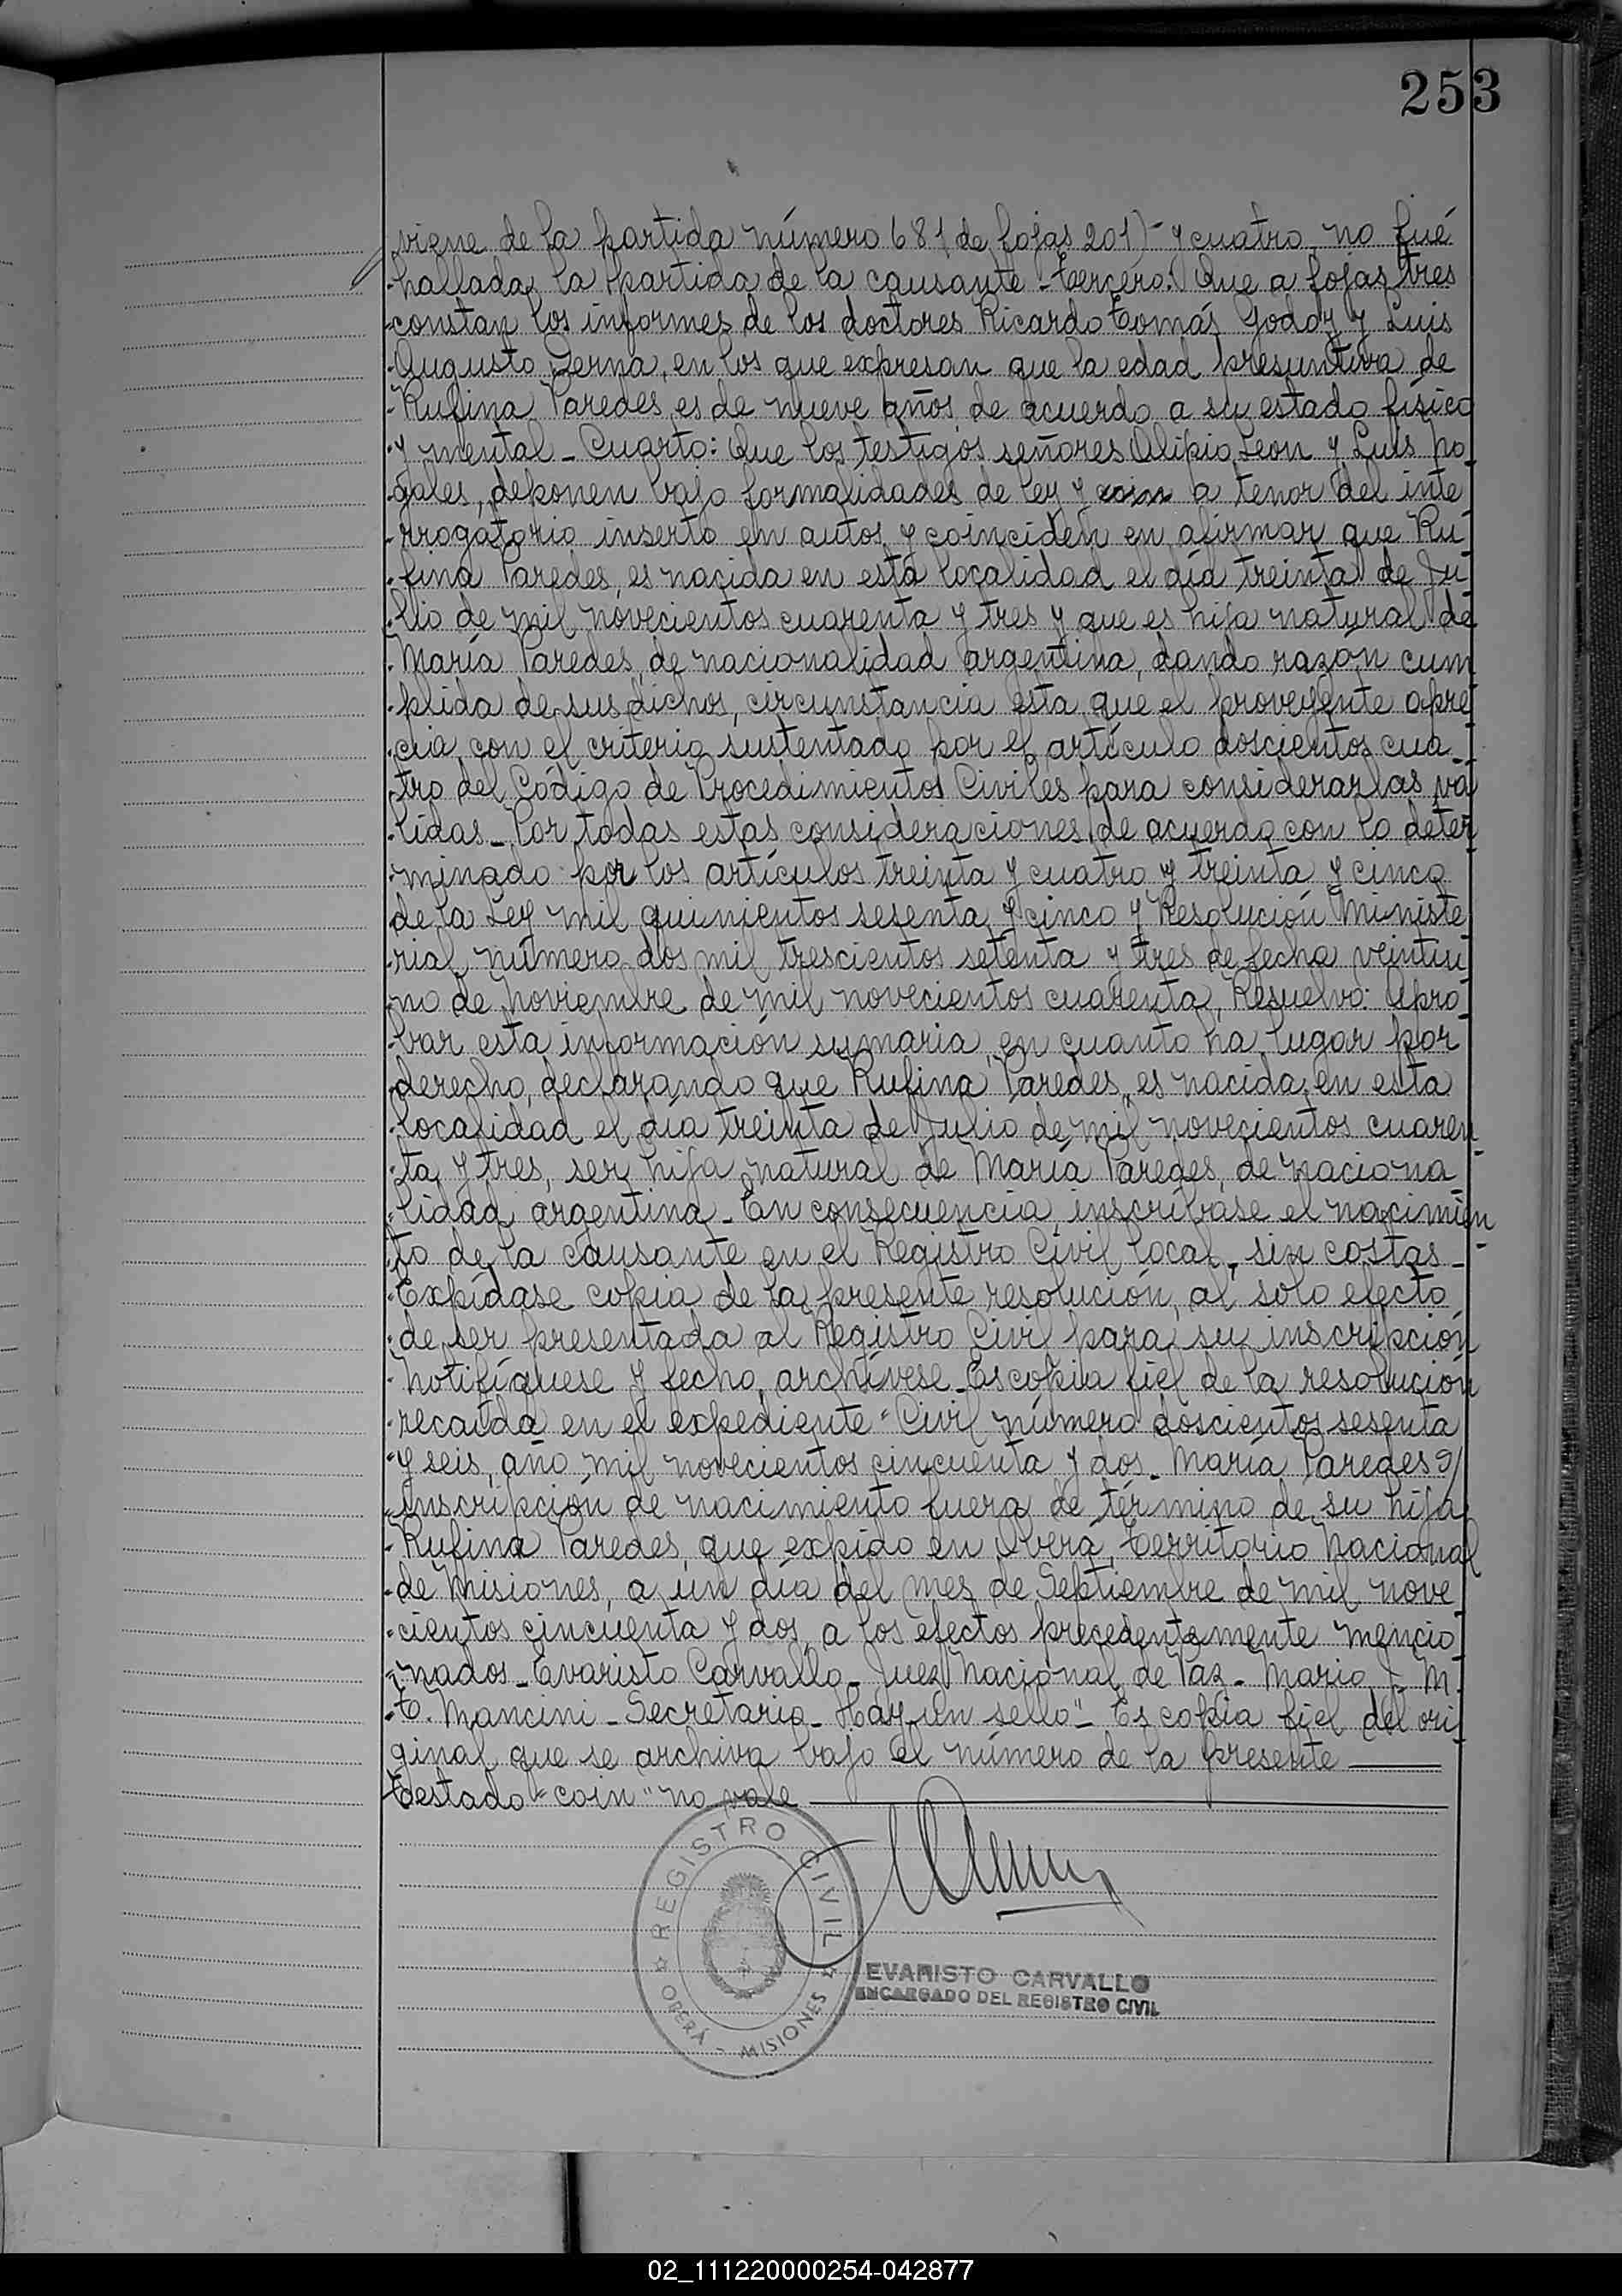 253
viene de la partida número 681 de fojas 201)- y cuatro, no fué
hallada la partida de la causante - Tercero: Que a fojas tres
constan los informes de los doctores Ricardo Tomás Godoy y Luis
Augusto Derna, en los que expresan que la edad presuntiva de
Rufina Paredes, es de nueve años, de acuerdo a su estado físico
y mental - Cuarto: Que los testigos señores Olipio Leon y Luis No
gales, deponen bajo formalidades de ley y coin a tenor del inte
rrogatorio inserto en autos y coinciden en afirmar que Ru
fina Paredes, es nacida en esta localidad el día treinta de Ju
lio de mil novecientos cuarenta y tres y que es hija natural de
María Paredes, de nacionalidad argentina, dando razón cum
plida de sus dichos, circunstancia esta que el proveyente apre
cia, con el criterio sustentado por el artículo doscientos cua
tro del Código de Procedimientos Civiles para considerarlas vá
lidas - Por todas estas consideraciones, de acuerdo con lo deter
minado por los artículos treinta y cuatro y treinta y cinco
de la Ley mil quinientos sesenta y cinco y Resolución Ministe
rial número dos mil trescientos setenta y tres de fecha veintiu
no de Noviembre de mil novecientos cuarenta, Resuelvo: Apro
bar esta información sumaria, en cuanto ha lugar por
derecho, declarando que Rufina Paredes, es nacida en esta
localidad el día treinta de Julio de mil novecientos cuaren
ta y tres, ser hija natural de María Paredes, de naciona
lidad argentina - En consecuencia, inscríbase el nacimien
to de la causante en el Registro Civil local, sin costas -
Expídase copia de la presente resolución, al solo efecto
de ser presentada al Registro Civil para su inscripción
Notifíquese y fecho, archívese - Es copia fiel de la resolución
recaída en el expediente "Civil número doscientos sesenta
y seis, año mil novecientos cincuenta y dos - María Paredes s/
Inscripción de nacimiento fuera de término de su hija
Rufina Paredes, que expido en Oberá, Territorio Nacional
de Misiones, a un día del mes de Septiembre de mil nove
cientos cincuenta y dos, a los efectos precedentemente mencio
nados - Evaristo Carvallo - Juez Nacional de Paz - Mario J. M.
T. Mancini - Secretario - Hay un sello" - Es copia fiel del ori
ginal que se archiva bajo el número de la presente
Testado "coin" no vale
REGISTRO CIVIL
OBERÁ - MISIONES
EVARISTO CARVALLO
ENCARGADO DEL REGISTRO CIVIL
02_111220000254-042877